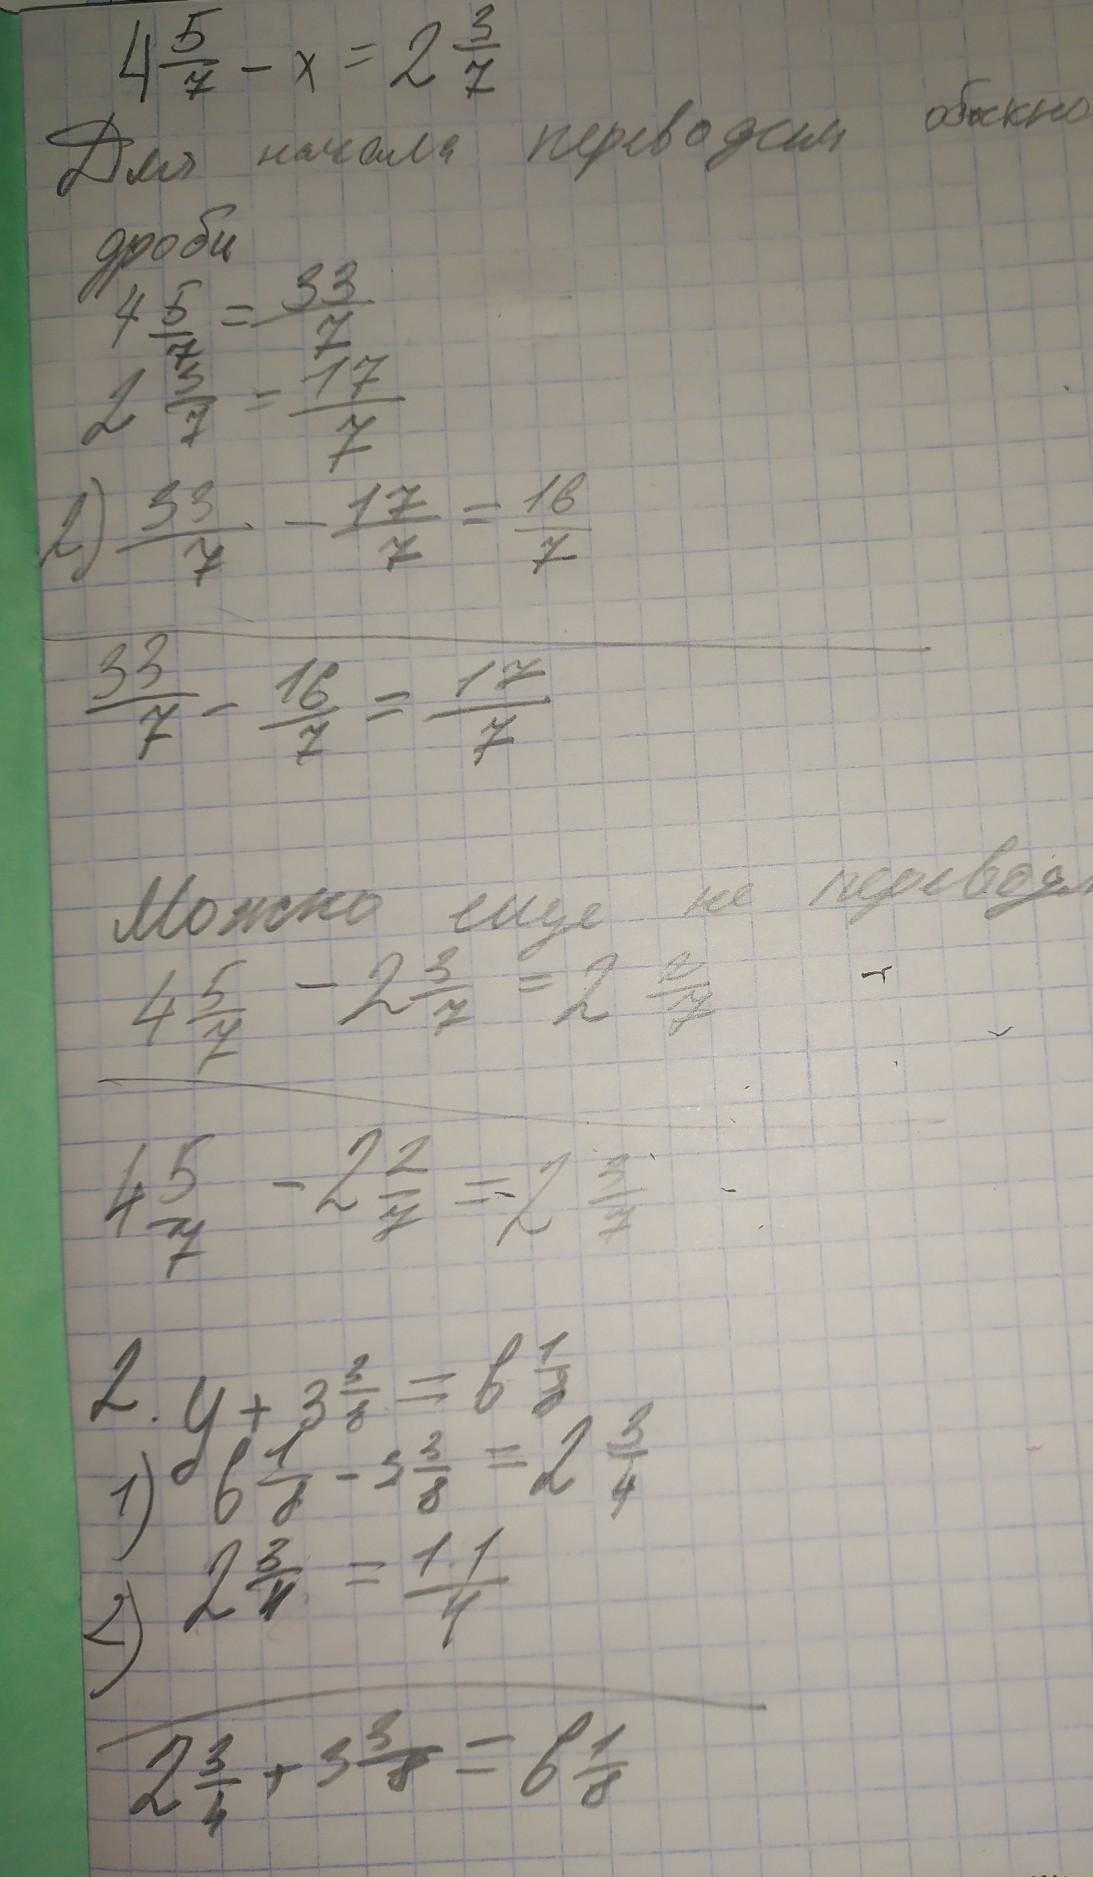 4 5/7 - x = 2 3/7
Для начала переводим обыкно
дроби
4 5/7 = 33/7
2 3/7 = 17/7
2) 33/7 - 17/7 = 16/7
33/7 - 16/7 = 17/7
Можно еще не переводя
4 5/7 - 2 3/7 = 2 2/7
4 5/7 - 2 2/7 = 2 3/7
2. y + 3 3/8 = 6 1/8
1) 6 1/8 - 3 3/8 = 2 3/4
2) 2 3/4 = 11/4
2 3/4 + 3 3/8 = 6 1/8